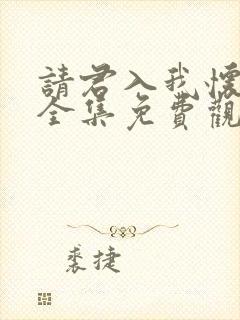 請君入我懷
全集免費觀
裘捷